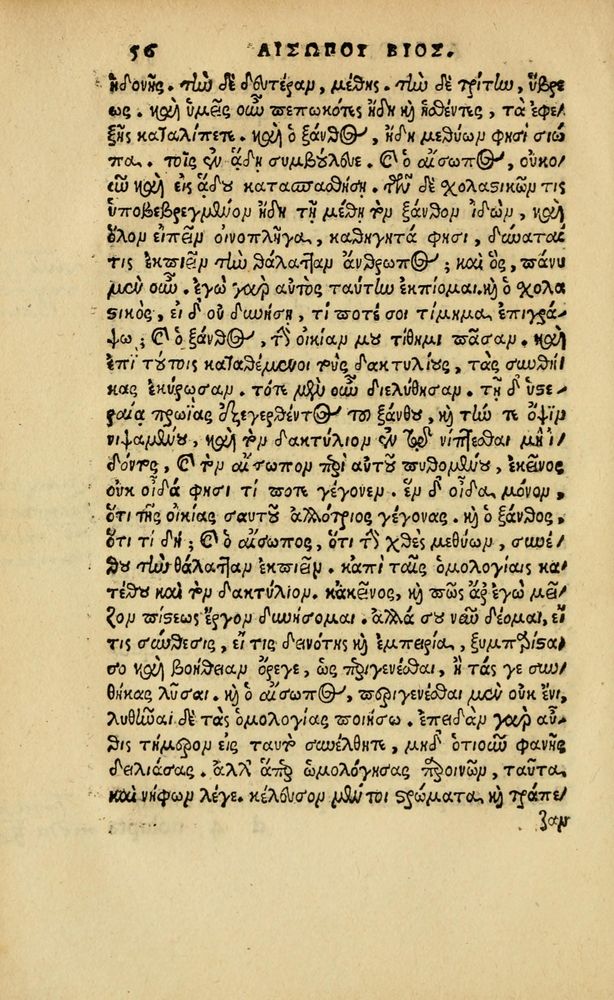 56 ΑΙΣΩΠΟΥ ΒΙΟΣ.
ἡδονῆς. τὴν δὲ δευτέραν, μέθης. τὴν δὲ τρίτην, ὕβρε
ως. καὶ ὑμεῖς οὖν πεπωκότες ἤδη κὴ ἡσθέντες, τὰ ἐφε
ξῆς καταλίπετε. καὶ ὁ ξάνθος, ἤδη μεθύων φησὶ σιώ
πα. τοῖς ἐν ᾅδῃ συμβούλευε. καὶ ὁ αἴσωπος, οὐκο
ῦν καὶ εἰς ᾅδου κατασπασθήσῃ. τῶν δὲ σχολαστικῶν τις
ὑποβεβρεγμένον ἤδη τῇ μέθῃ τὸν ξάνθον ἰδὼν, καὶ
ὅλον εἰπεῖν οἰνοπλῆγα, καθηγητά φησι, δύναταί
τις ἐκπιεῖν τὴν θάλατταν ἄνθρωπος; καὶ ὃς, πάνυ
μὲν οὖν. ἐγὼ γὰρ αὐτὸς ταύτην ἐκπίομαι. κὴ ὁ σχολα
στικὸς, εἰ δ' οὐ δυνήσῃ, τί ποτέ σοι τίμημα ἐπιγρά
ψω; καὶ ὁ ξάνθος, τὴν οἰκίαν μου τίθημι πᾶσαν. καὶ
ἐπὶ τούτοις καταθέμενοι τοὺς δακτυλίους, τὰς συνθή
κας ἐκύρωσαν. τότε μὲν οὖν διελύθησαν. τῇ δ' ὑστε
ραίᾳ πρωίας ἐξεγερθέντος τοῦ ξάνθου, κὴ τήν τε ὄψιν
νιψαμένου, καὶ τὸν δακτύλιον ἐν τῷ νίπτεσθαι μὴ ἰ
δόντος, καὶ τὸν αἴσωπον περὶ αὐτοῦ πυθομένου, ἐκεῖνος
οὐκ οἶδά φησι τί ποτε γέγονεν. ἓν δ' οἶδα μόνον,
ὅτι τῆς οἰκίας σαυτοῦ ἀλλότριος γέγονας. κὴ ὁ ξάνθος,
ὅτι τί δή; καὶ ὁ αἴσωπος, ὅτι τῇ χθὲς μεθύων, συνέ
θου τὴν θάλατταν ἐκπιεῖν. κἀπὶ ταῖς ὁμολογίαις κα
τέθου καὶ τὸν δακτύλιον. κἀκεῖνος, κὴ πῶς ἆρ' ἐγὼ μεῖ
ζον πίστεως ἔργον δυνήσομαι. ἀλλά σου νῦν δέομαι, εἴ
τις σύνθεσις, εἴ τις δεινότης κὴ ἐμπειρία, ξυμπόρισα
σο καὶ βοήθειαν ὄρεγε, ὡς περιγενέσθαι, ἢ τάς γε συν
θήκας λῦσαι. κὴ ὁ αἴσωπος, περιγενέσθαι μὲν οὐκ ἔνι,
λυθῆναι δὲ τὰς ὁμολογίας ποιήσω. ἐπειδὰν γὰρ αὖ
θις τήμερον εἰς ταυτὸν συνέλθητε, μηδ' ὁτιοῦν φανῇς
δειλιάσας. ἀλλ' ἅπερ ὡμολόγησας παροινῶν, ταῦτα
καὶ νήφων λέγε. κέλευσον μέντοι στρώματα, κὴ τράπε
ζαν